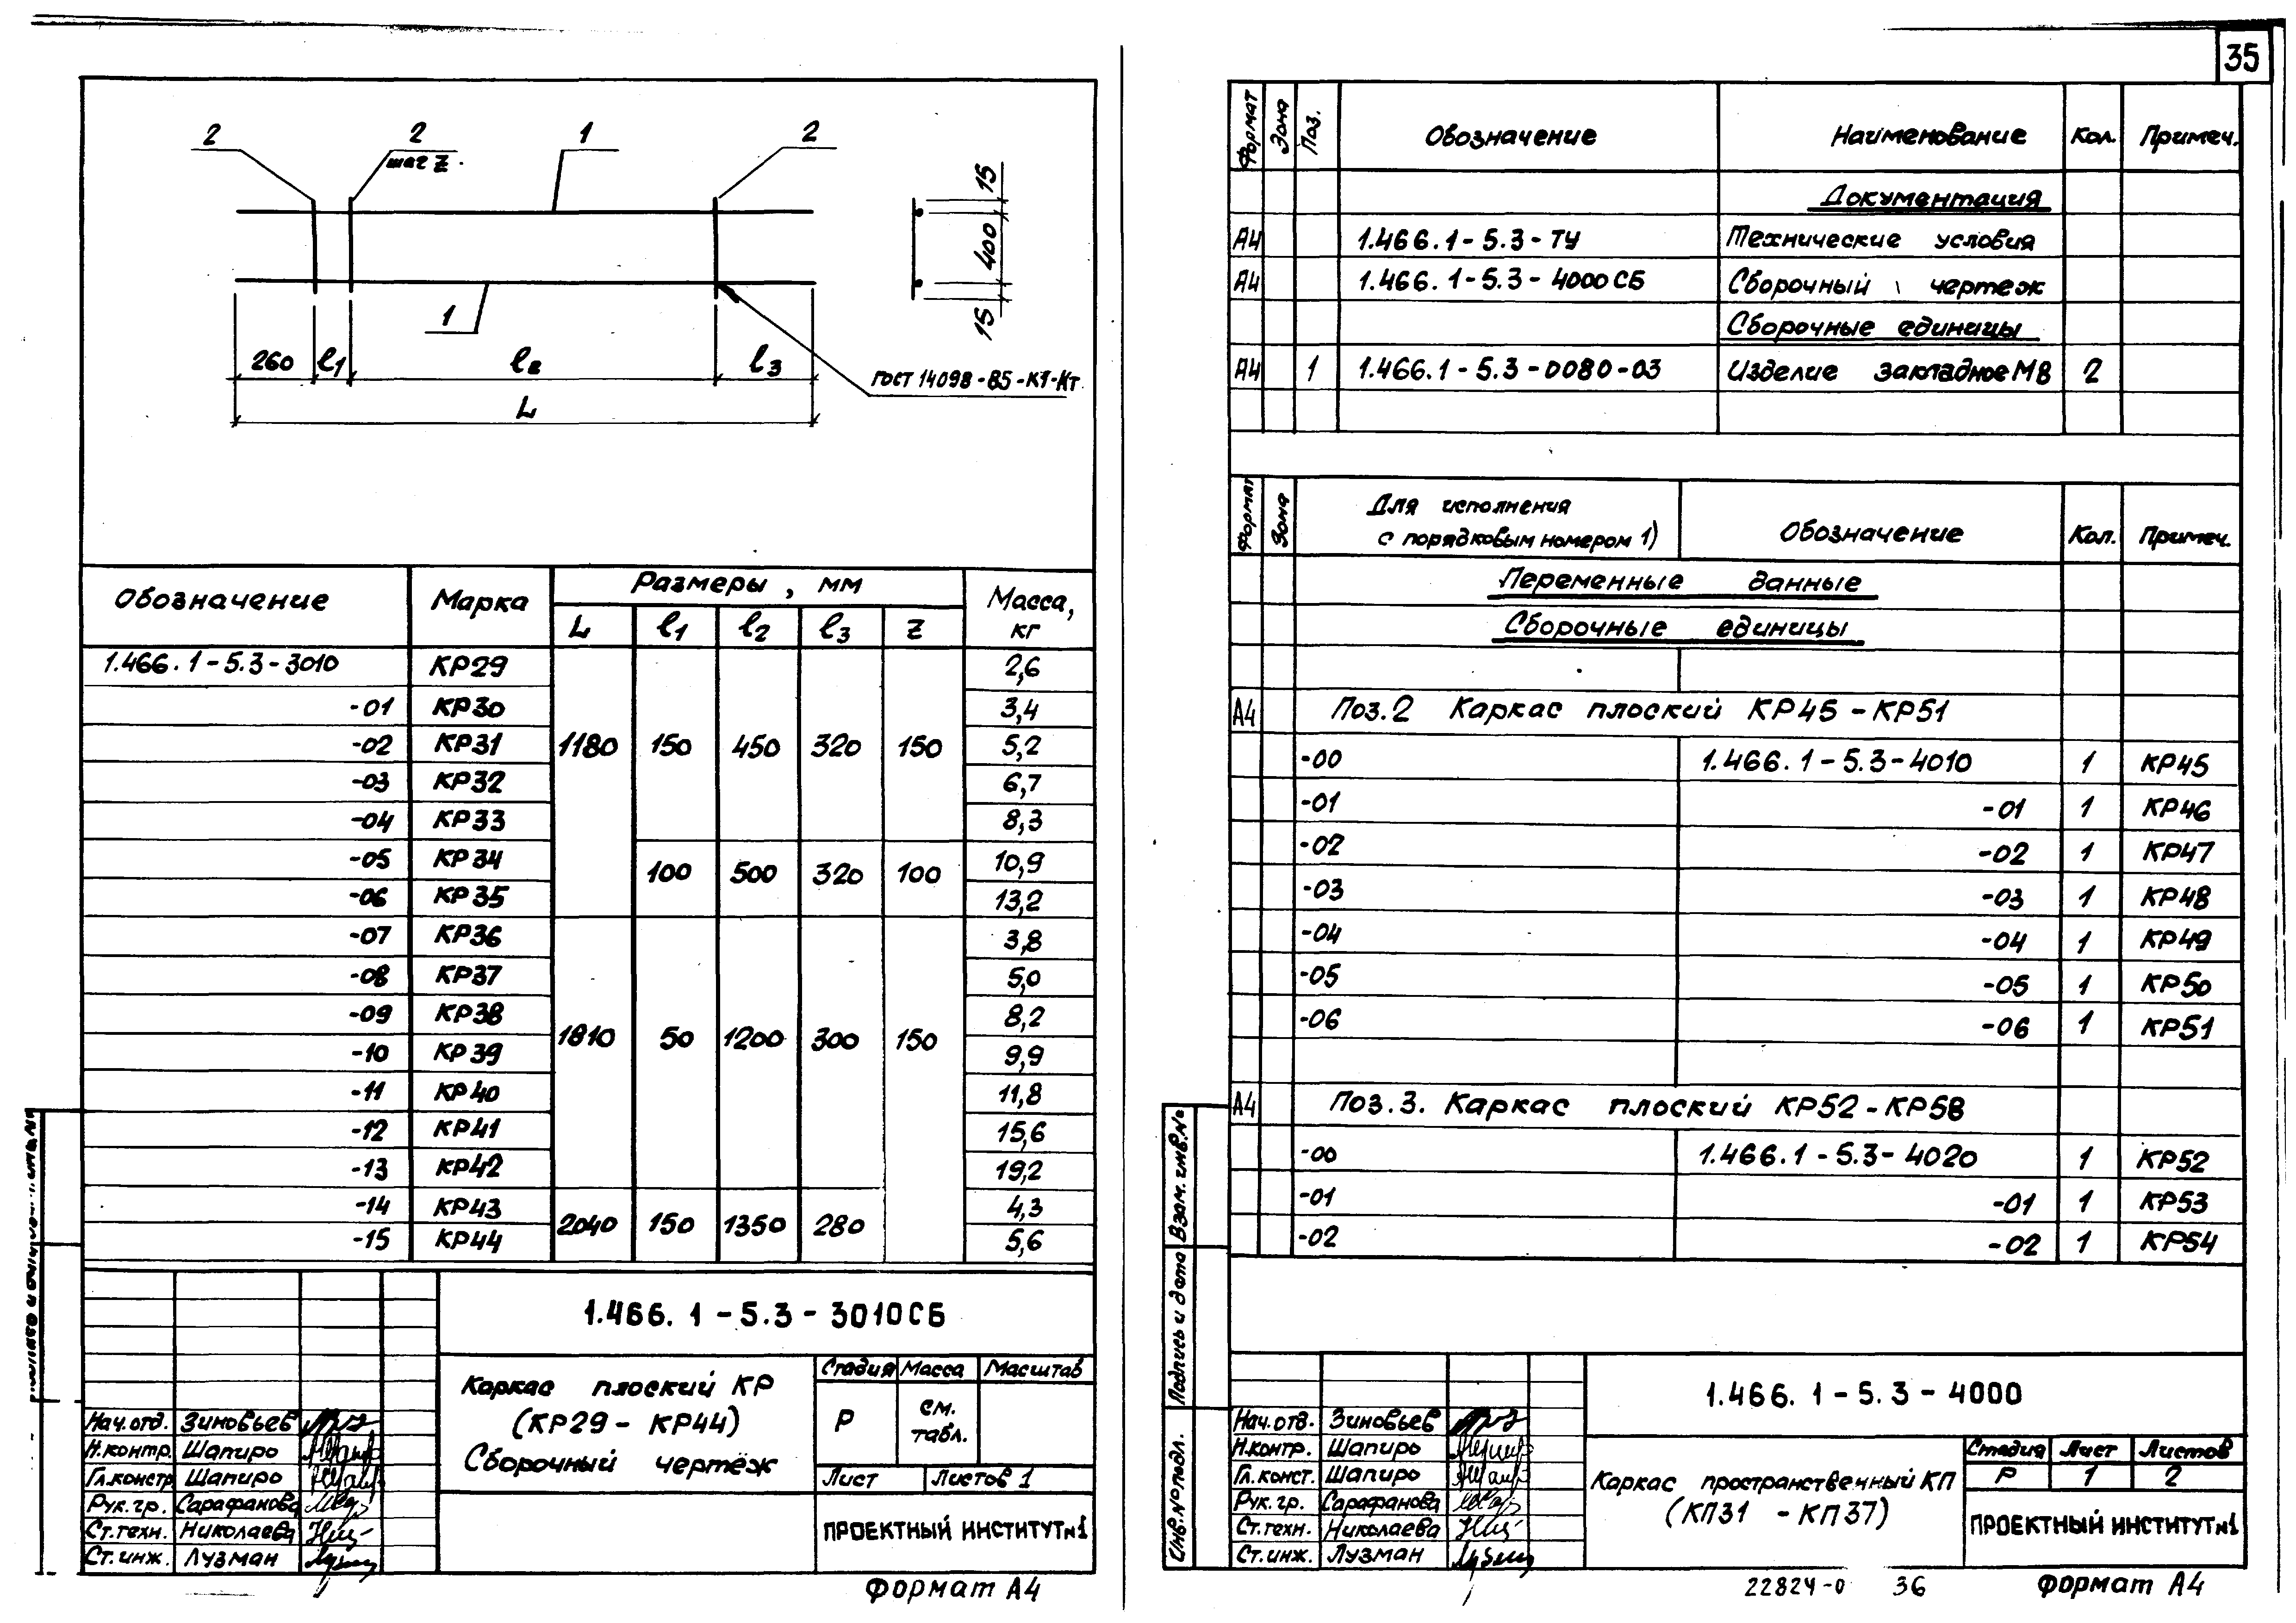 35
2
2
шаг Z
1
2
1
15
400
15
260
ℓ1
ℓ2
ℓ3
L
ГОСТ 14098-85-К1-Кт
Обозначение Марка Размеры, мм Масса, кг
L ℓ1 ℓ2 ℓ3 Z
1.466.1-5.3-3010 КР29 2,6
-01 КР30 3,4
-02 КР31 1180 150 450 320 150 5,2
-03 КР32 6,7
-04 КР33 8,3
-05 КР34 100 500 320 100 10,9
-06 КР35 13,2
-07 КР36 3,8
-08 КР37 5,0
-09 КР38 8,2
1810 50 1200 300 150
-10 КР39 9,9
-11 КР40 11,8
-12 КР41 15,6
-13 КР42 19,2
-14 КР43 4,3
2040 150 1350 280
-15 КР44 5,6
1.466.1-5.3-3010СБ
Каркас плоский КР
(КР29-КР44)
Сборочный чертёж
Стадия Масса Масштаб
Р см. табл.
Лист Листов 1
ПРОЕКТНЫЙ ИНСТИТУТ №1
Нач.отд. Зиновьев
Н.контр. Шапиро
Гл.констр Шапиро
Рук.гр. Сарафанова
Ст.техн. Николаева
Ст.инж. Лузман
Формат А4
Формат Зона Поз. Обозначение Наименование Кол. Примеч.
Документация
А4 1.466.1-5.3-ТУ Технические условия
А4 1.466.1-5.3-4000СБ Сборочный чертеж
Сборочные единицы
А4 1 1.466.1-5.3-0080-03 Изделие закладное М8 2
Формат Зона Для исполнения с порядковым номером 1) Обозначение Кол. Примеч.
Переменные данные
Сборочные единицы
А4 Поз.2 Каркас плоский КР45-КР51
-00 1.466.1-5.3-4010 1 КР45
-01 -01 1 КР46
-02 -02 1 КР47
-03 -03 1 КР48
-04 -04 1 КР49
-05 -05 1 КР50
-06 -06 1 КР51
А4 Поз.3. Каркас плоский КР52-КР58
-00 1.466.1-5.3-4020 1 КР52
-01 -01 1 КР53
-02 -02 1 КР54
Взам. инв.№
Подпись и дата
Инв.№ подл.
1.466.1-5.3-4000
Каркас пространственный КП
(КП31 -КП37)
Стадия Лист Листов
Р 1 2
ПРОЕКТНЫЙ ИНСТИТУТ №1
Нач.отд. Зиновьев
Н.контр. Шапиро
Гл.конст. Шапиро
Рук.гр. Сарафанова
Ст.техн. Николаева
Ст.инж. Лузман
22824-0 36
Формат А4